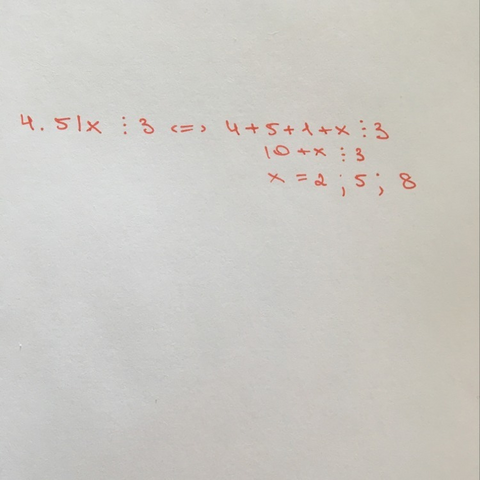 4.51x ⋮ 3 <=> 4+5+1+x ⋮ 3
10+x ⋮ 3
x = 2 ; 5 ; 8